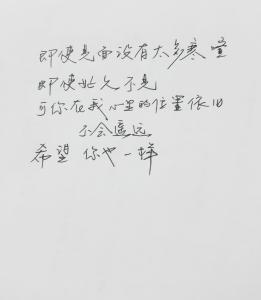 即使见面没有太多寒暄
即使好久不见
可你在我心里的位置依旧
不会遥远
希望 你也一样